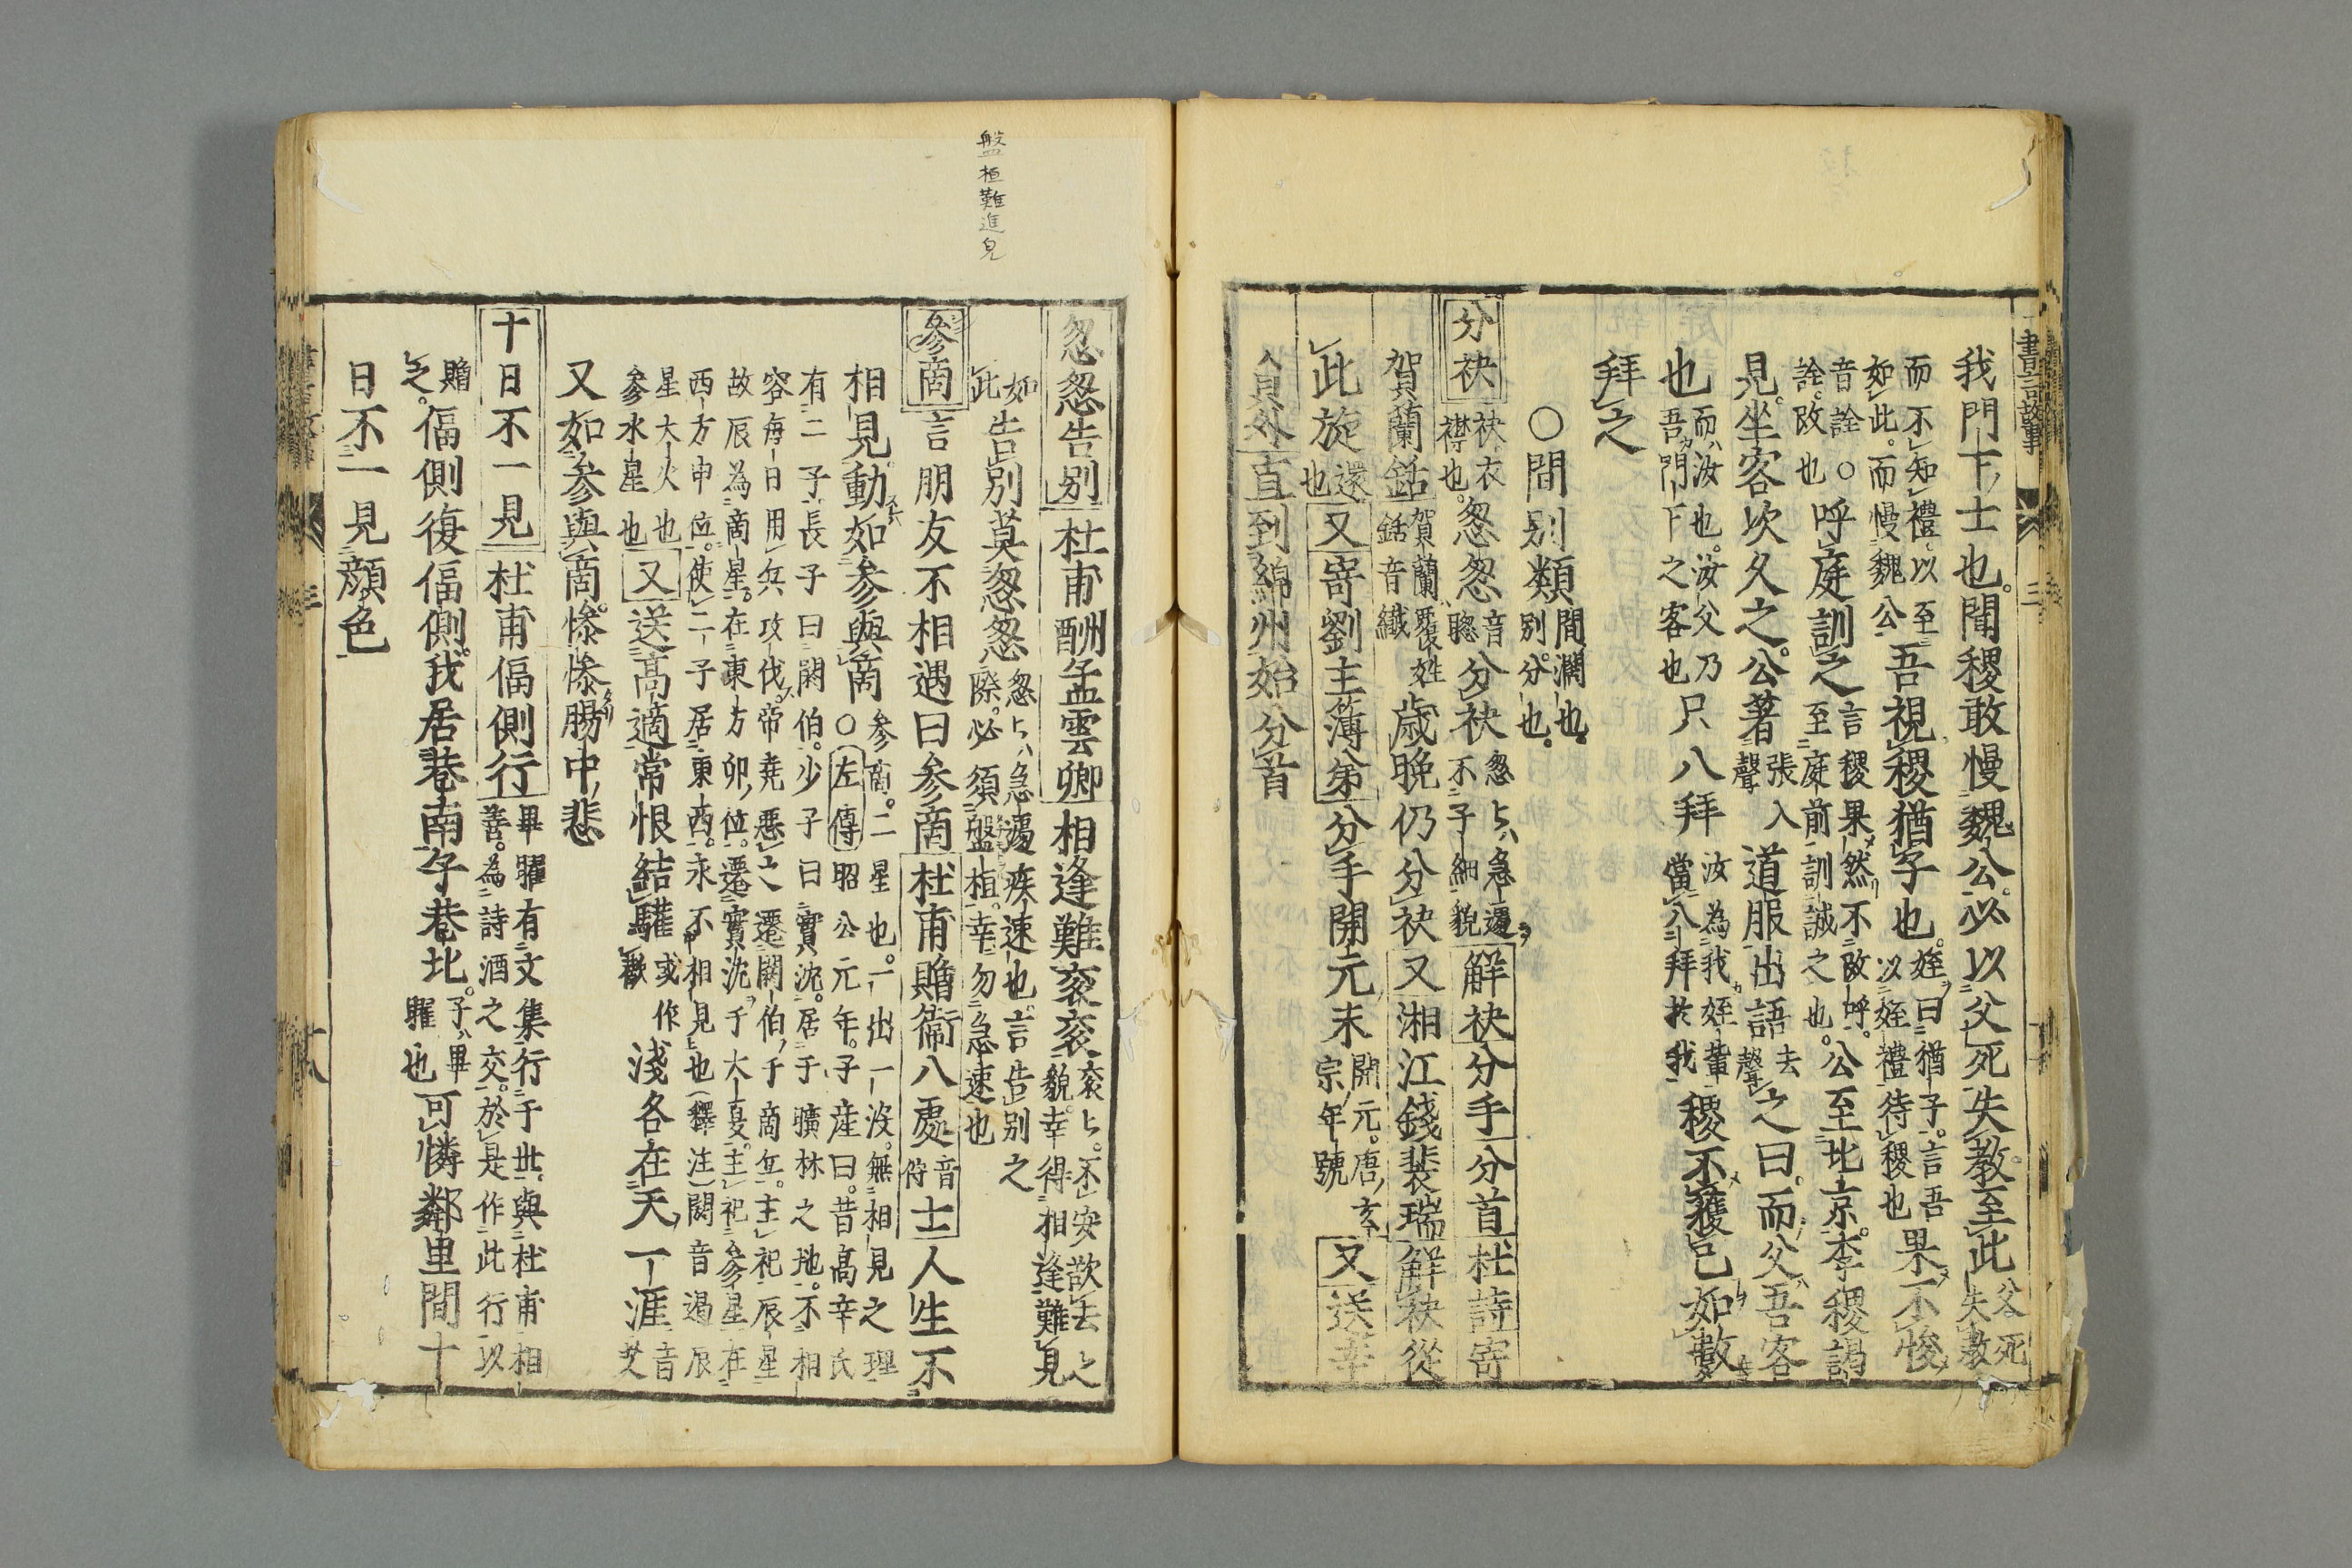 書言故事 三
我門下士也聞稷敢慢魏公必以父死失教至此父死失教
而不知禮以至如此而慢魏公吾視稷猶子也姪曰猶子言吾以姪禮待稷也果不悛
音詮○詮改也呼庭訓之言稷果然不改呼至庭前訓誡之也公至北京李稷謁
見坐客次久之公著張入聲道服出語去聲之曰而父吾客
也而汝也汝父乃吾門下之客也只八拜汝為我姪輩當八拜於我稷不獲已如數
拜之
○間別類間濶也別分也
分袂袂衣襟也怱怱音聦分袂怱〻急遽不子細貌解袂分手分首杜詩寄
賀蘭銛賀蘭覆姓銛音纖歲晚仍分袂又湘江錢裴瑞解袂從
此旋還也又寄劉主薄弟分手開元末開元唐玄宗年號又送辛
員外直到綿州始分首
盤桓難進皃
怱怱告別杜甫酬孟雲卿相逢難衮衮衮〻不安欲去之貌幸得相逢難見
如此告別莫怱怱怱〻急遽疾速也言告別之際必須盤桓幸勿急速也
參商言朋友不相遇曰參商杜甫贈衞八處音侍士人生不
相見動如參與商○參商二星也一出一没無相見之理左傳昭公元年子産曰昔高辛氏
有二子長子曰閼伯少子曰實沈居于曠林之地不相
容每日用兵攻伐帝堯惡之遷閼伯于商丘主祀辰星
故辰為商星在東方卯位遷實沈于大夏主祀參星在
西方申位使二子居東西永不相見也釋注閼音遏辰
星大火也參水星也又送高適常恨結驩或作歡淺各在天一涯音
又如參與商慘慘腸中悲
十日不一見杜甫偪側行畢曜有文集行于世與杜甫相善為詩酒之交於是作此行以
贈之偪側復偪側我居巷南子巷北子畢曜也可憐鄰里間十
日不一見顔色